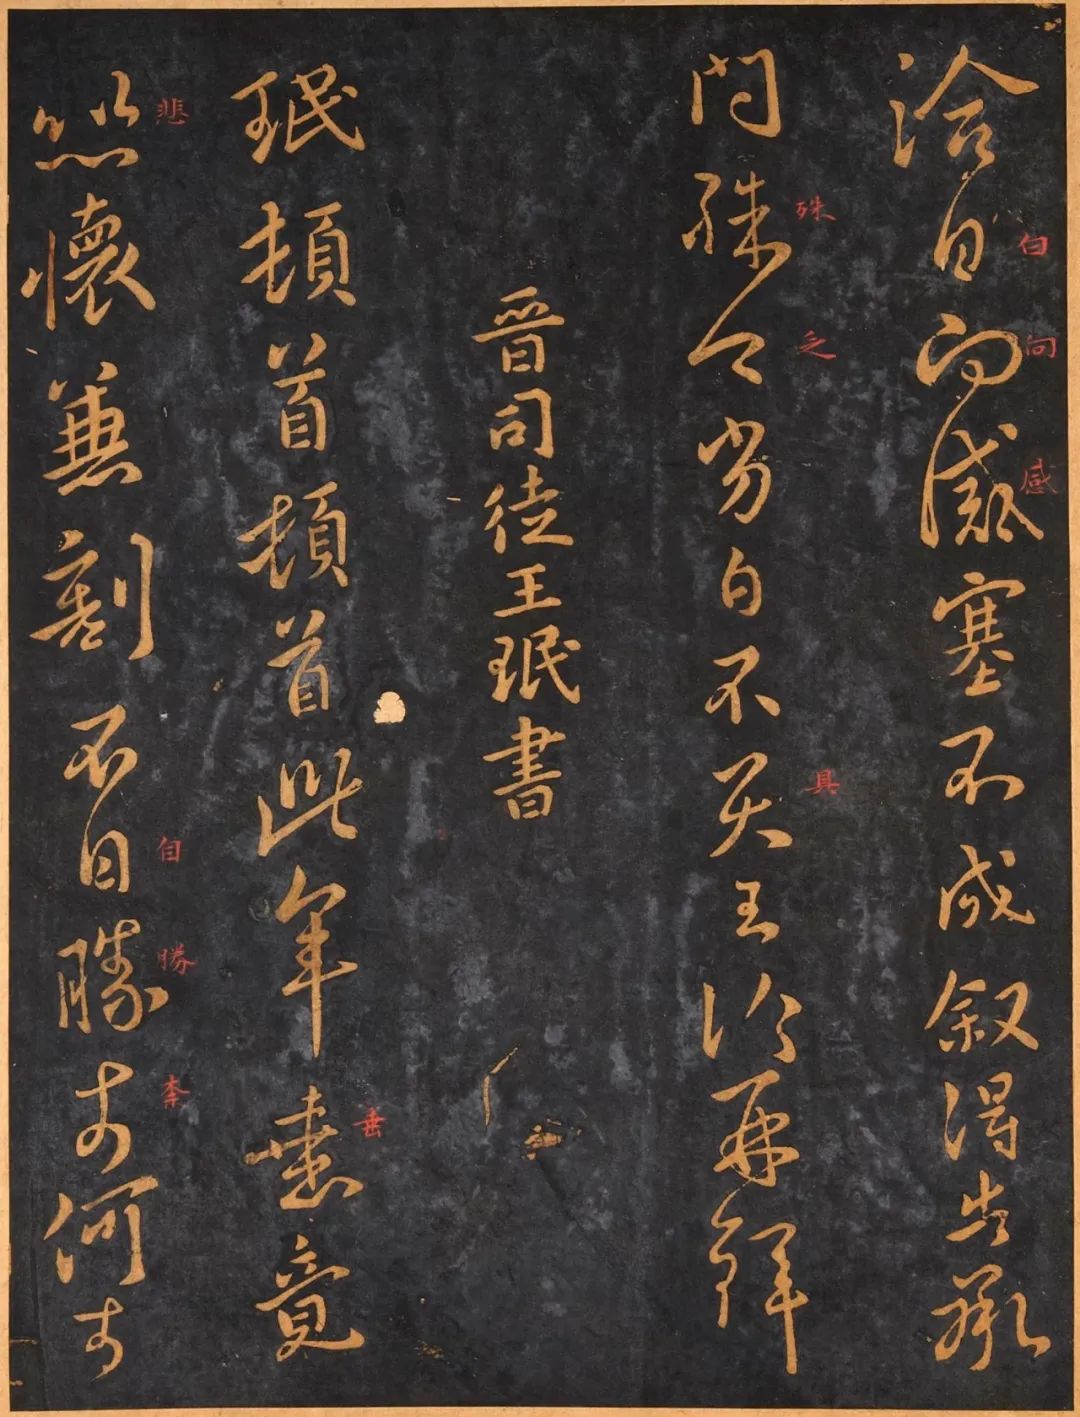 洽白向感塞不成叙得告承
白
向
感
問殊乏劣白不具王洽再拜
殊
乏
具
晉司徒王珉書
珉頓首頓首此年垂竟
垂
悲懷兼割不自勝柰何柰
悲
自
勝
柰